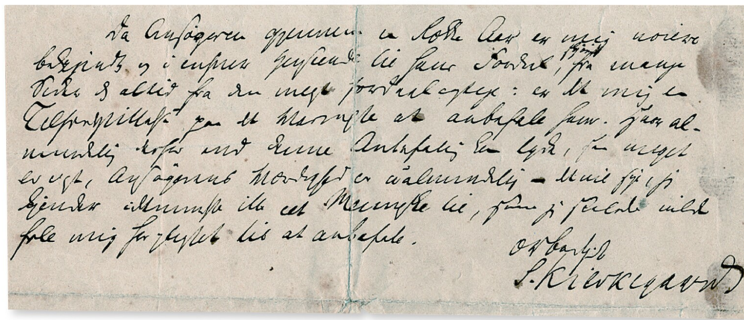 Da Ansøgeren gjennem en Række Aar er mig nøiere
bekjendt og i enhver Henseende til hans Fordeel, fra mange
Sider og altid fra den meget fordeelagtige: er det mig en
Tilfredsstillelse paa det Varmeste at anbefale ham. Hvor al-
mindelig derfor end denne Anbefaling kan lyde, saa meget
er vist, Ansøgerens Værdighed er ualmindelig –
kjender idetmindste ikke eet Menneske til, som jeg saaledes vilde
føle mig forpligtet til at anbefale.
ærbødigst
S. Kierkegaard